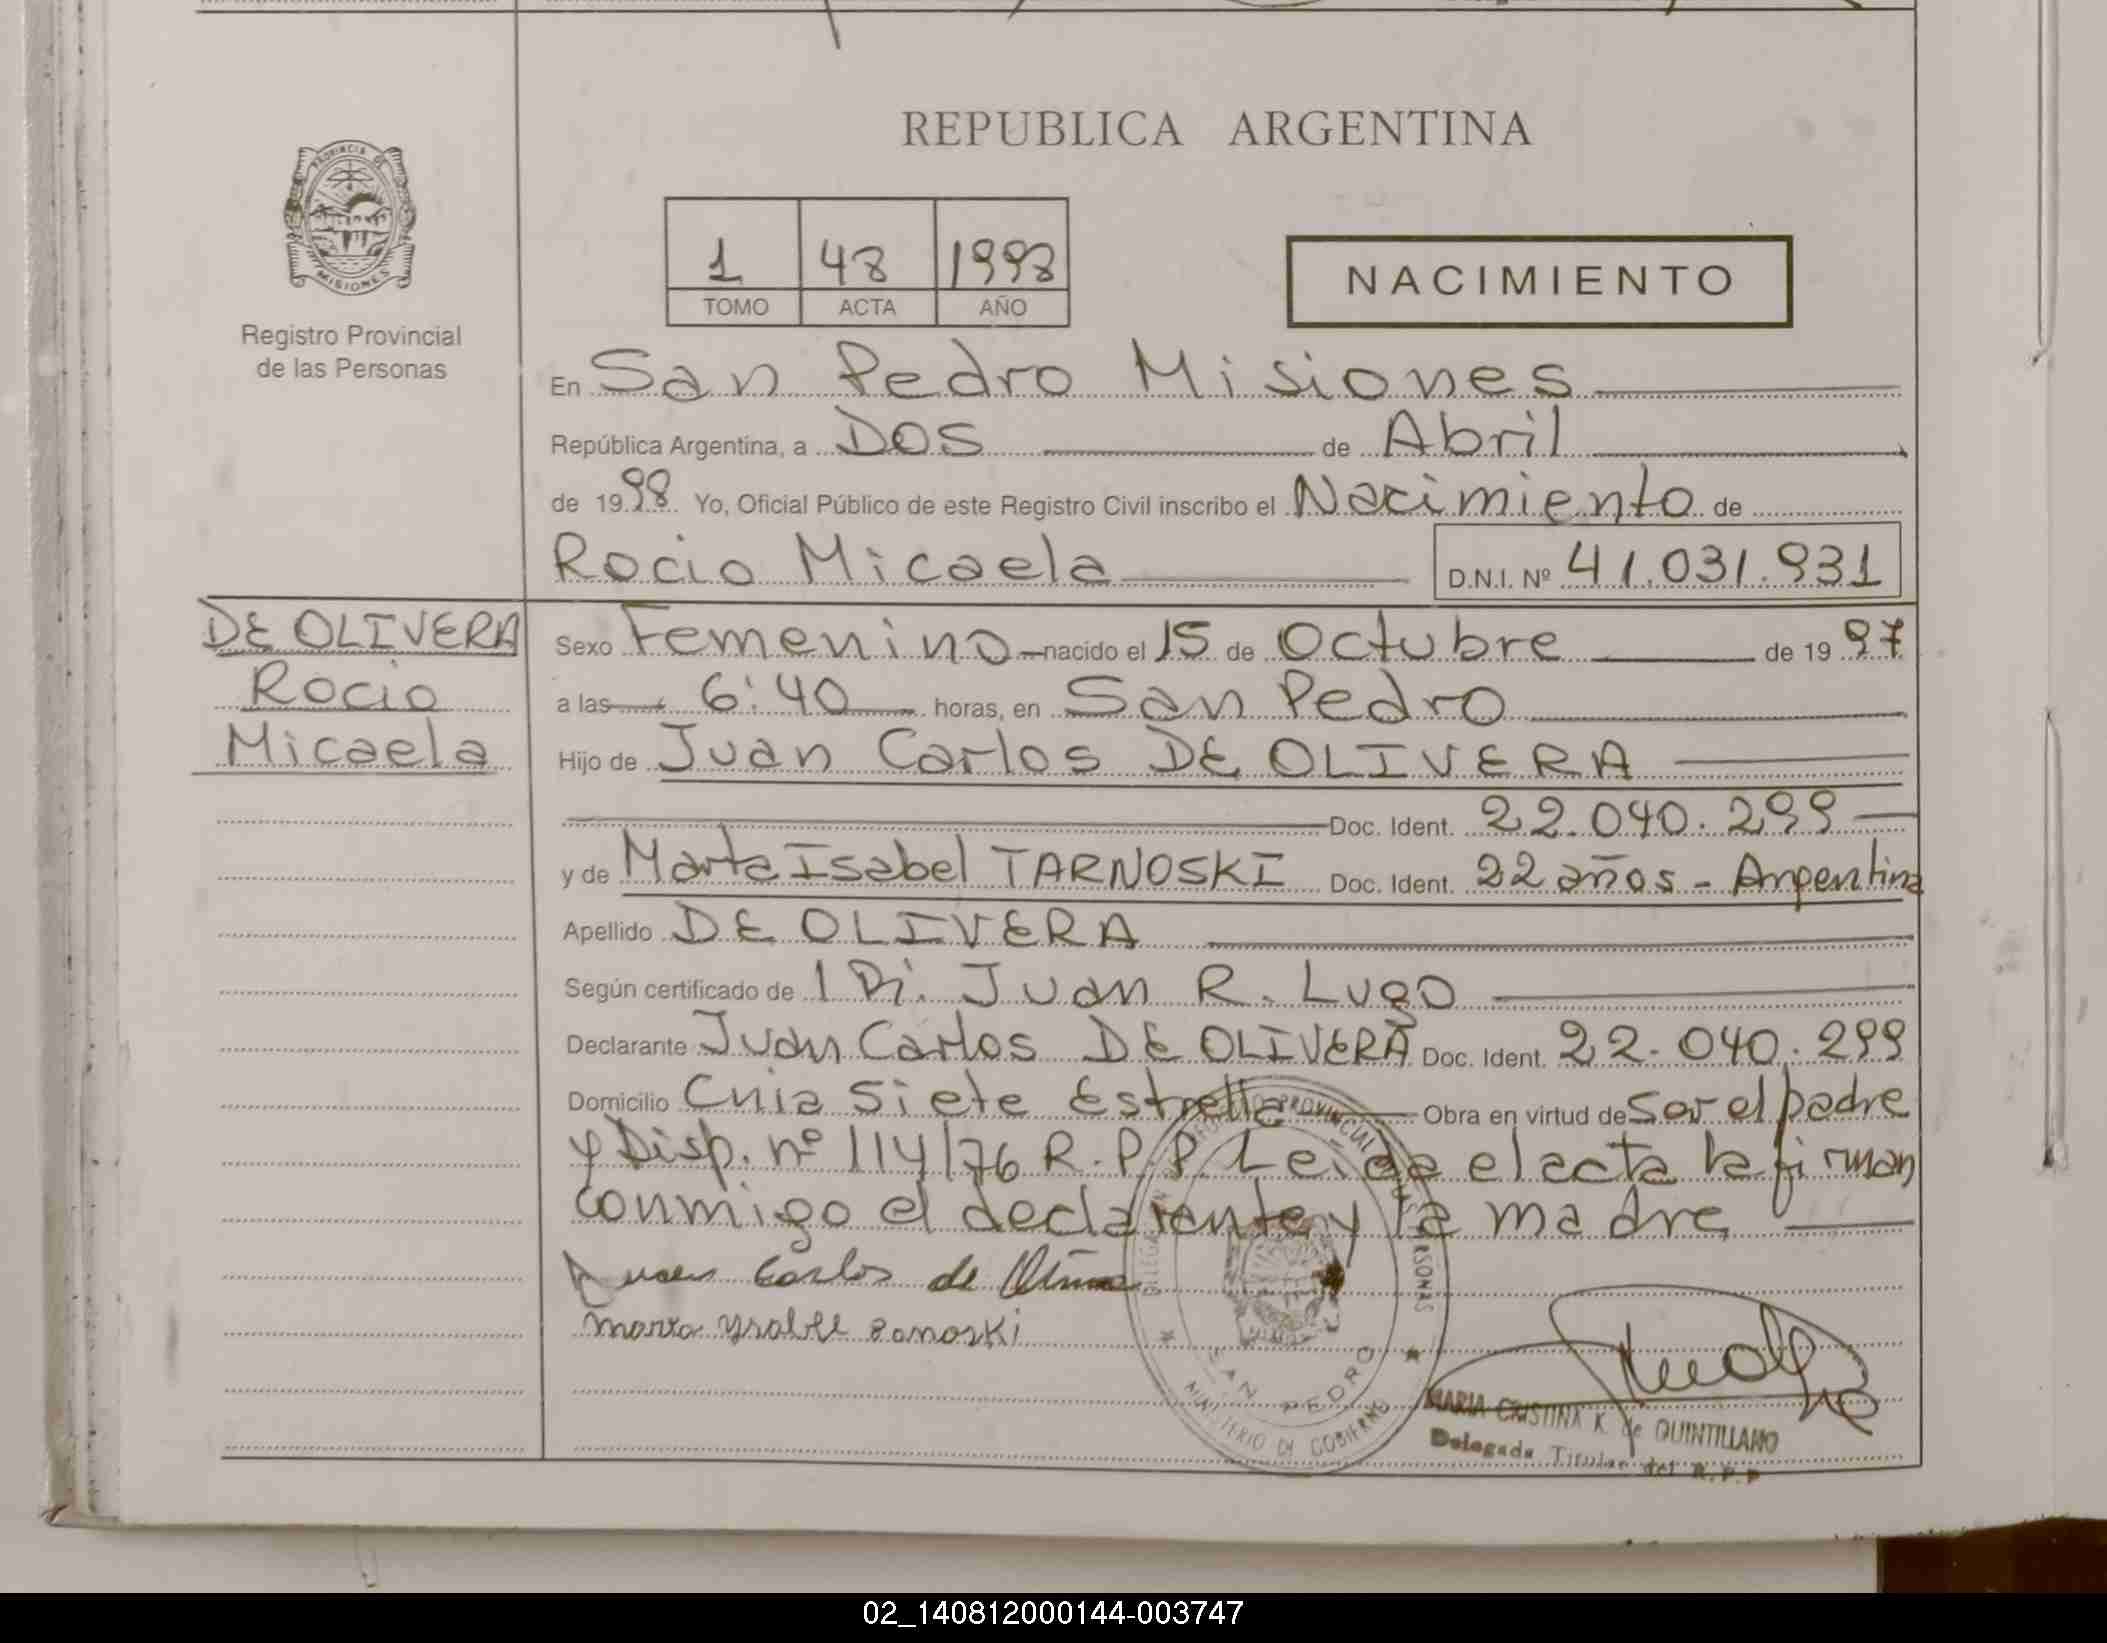 REPUBLICA ARGENTINA
PROVINCIA DE
MISIONES
Registro Provincial
de las Personas
1 48 1998
TOMO ACTA AÑO
NACIMIENTO
En San Pedro Misiones
República Argentina, a Dos de Abril
de 1998 Yo, Oficial Público de este Registro Civil inscribo el Nacimiento de
Rocio Micaela D.N.I. Nº 41.031.931
DE OLIVERA
Rocio
Micaela
Sexo Femenino nacido el 15 de Octubre de 1997
a las 6:40 horas, en San Pedro
Hijo de Juan Carlos DE OLIVERA
Doc. Ident. 22.040.299
y de Marta Isabel TARNOSKI Doc. Ident. 22 años - Argentina
Apellido DE OLIVERA
Según certificado de Juan R. Lugo
Declarante Juan Carlos DE OLIVERA Doc. Ident. 22.040.299
Domicilio Cnia Siete Estrella Obra en virtud de Ser el padre
y Disp. nº 114/76 R.P.P. Leida el acta la firman
conmigo el declarante y la madre
Carlos de
SAN PEDRO
MINISTERIO DE GOBIERNO
MARIA CRISTINA K. de QUINTILLANO
Delegada Titular del R.P.P
02_140812000144-003747